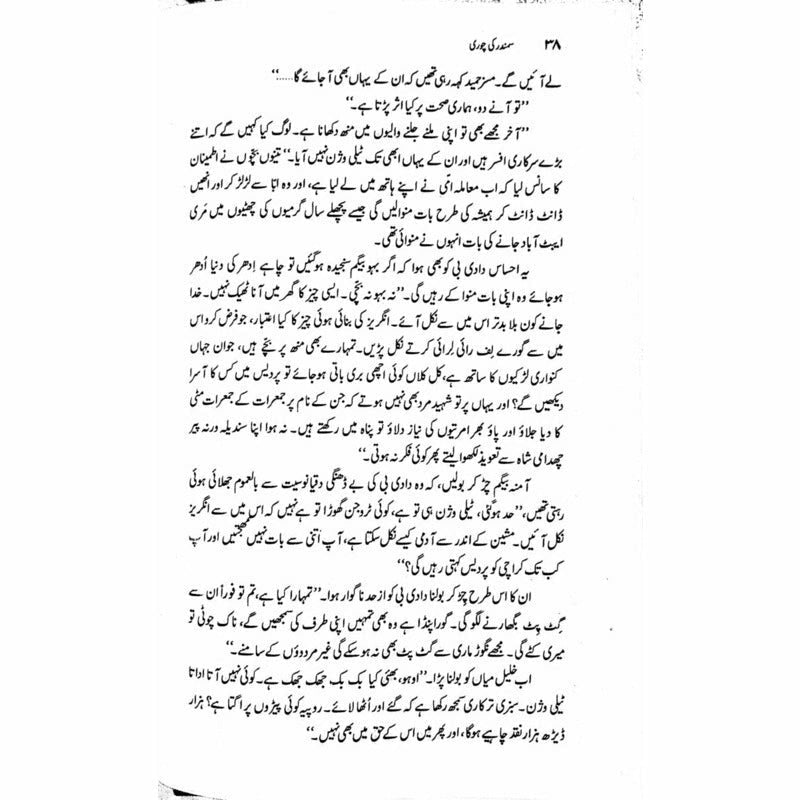 ۳۸ سمندر کی چوری
لے آئیں گے۔ مسز حمید کہہ رہی تھیں کہ ان کے یہاں بھی آ جائے گا.....‘‘
’’تو آنے دو، ہماری صحت پر کیا اثر پڑتا ہے۔‘‘
’’آخر مجھے بھی تو اپنی ملنے جلنے والیوں میں منھ دکھانا ہے۔ لوگ کیا کہیں گے کہ اتنے
بڑے سرکاری افسر ہیں اور ان کے یہاں ابھی تک ٹیلی وژن نہیں آیا۔‘‘ تینوں بچّوں نے اطمینان
کا سانس لیا کہ اب معاملہ امّی نے اپنے ہاتھ میں لے لیا ہے، اور وہ ابّا سے لڑ لڑ کر اور انھیں
ڈانٹ ڈانٹ کر ہمیشہ کی طرح بات منوا لیں گی جیسے پچھلے سال گرمیوں کی چھٹیوں میں مَری
ایبٹ آباد جانے کی بات انہوں نے منوائی تھی۔
یہ احساس دادی بی کو بھی ہوا کہ اگر بہو بیگم سنجیدہ ہو گئیں تو چاہے اِدھر کی دنیا اُدھر
ہو جائے وہ اپنی بات منوا کے رہیں گی۔ ’’نہ بہو نہ بچّی۔ ایسی چیز کا گھر میں آنا ٹھیک نہیں۔ خدا
جانے کون بلا بدتر اس میں سے نکل آئے۔ انگریز کی بنائی ہوئی چیز کا کیا اعتبار، جو فرض کرو اس
میں سے گورے لِف رائی لِرائی کرتے نکل پڑیں۔ تمہارے بھی منھ پر بچّے ہیں، جوان جہاں
کنواری لڑکیوں کا ساتھ ہے، کل کلاں کوئی اچھی بری باتی ہو جائے تو پردیس میں کس کا آسرا
دیکھیں گے؟ اور یہاں پر تو شہید مرد بھی نہیں ہوتے کہ جن کے نام پر جمعرات کے جمعرات مٹی
کا دیا جلاؤ اور پاؤ بھر امرتیوں کی نیاز دلاؤ تو پناہ میں رکھتے ہیں۔ نہ ہوا اپنا سندیلہ ورنہ پیر
چھدامی شاہ سے تعویذ لکھوا لیتے پھر کوئی فکر نہ ہوتی۔‘‘
آمنہ بیگم چڑ کر بولیں، کہ وہ دادی بی کی بے ڈھنگی دقیانوسیت سے بالعموم جھلائی ہوئی
رہتی تھیں، ’’حد ہو گئی، ٹیلی وژن ہی تو ہے، کوئی ٹروجن گھوڑا تو ہے نہیں کہ اس میں سے انگریز
نکل آئیں۔ مشین کے اندر سے آدمی کیسے نکل سکتا ہے، آپ اتنی سے بات نہیں سمجھتیں اور آپ
کب تک کراچی کو پردیس کہتی رہیں گی؟‘‘
ان کا اس طرح چِڑ کر بولنا دادی بی کو از حد ناگوار ہوا۔ ’’تمہارا کیا ہے، تم تو فوراً ان سے
گِٹ پِٹ بگھارنے لگو گی۔ گورا پنڈا ہے وہ بھی تمہیں اپنی طرف کی سمجھیں گے، ناک چوٹی تو
میری کٹے گی۔ مجھے نگوڑ ماری سے گٹ پٹ بھی نہ ہو سکے گی غیر مردوؤں کے سامنے۔‘‘
اب خلیل میاں کو بولنا پڑا۔ ’’اوہو، بھئی کیا بک بک جھک جھک ہے۔ کوئی نہیں آتا اداتا
ٹیلی وژن۔ سبزی ترکاری سمجھ رکھا ہے کہ گئے اور اُٹھا لائے۔ روپیہ کوئی پیڑوں پر اگتا ہے؟ ہزار
ڈیڑھ ہزار نقد چاہیے ہو گا، اور پھر میں اس کے حق میں بھی نہیں۔‘‘